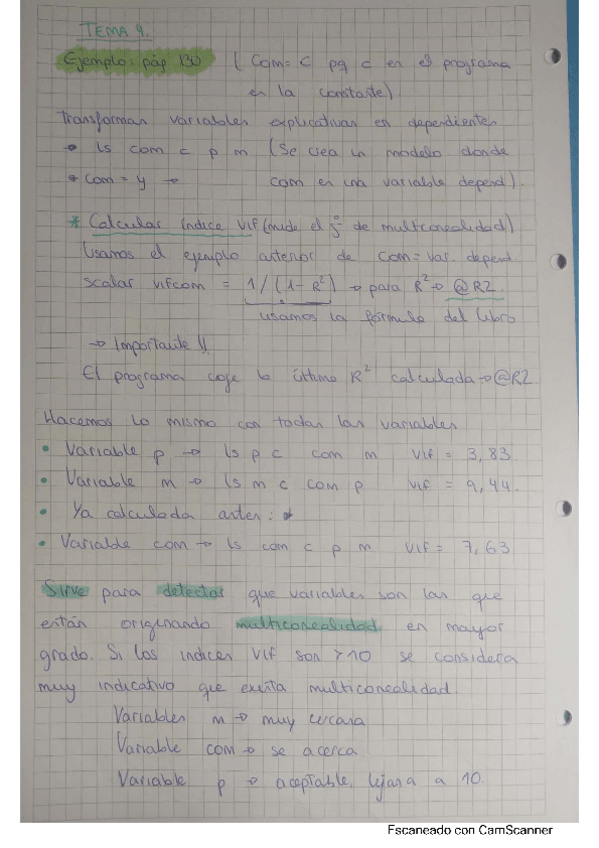 TEMA 9.
Ejemplo: pág 130 (Com = C pq c en el programa
es la constante)
Transformar variables explicativas en dependientes
→ ls com c p m (Se crea un modelo donde
* Com = y → com es una variable depend).
* Calcular índice VIF (mide el gº de multiconealidad)
Usamos el ejemplo anterior de Com = var. depend
scalar vifcom = 1/(1-R²) → para R² → @R2.
usamos la fórmula del libro
→ Importante!!
El programa coge la última R² calculada → @R2
Hacemos lo mismo con todas las variables
• Variable p → ls p c com m VIF = 3,83.
• Variable m → ls m c com p VIF = 9,44.
• Ya calculada antes: *
• Variable com → ls com c p m VIF = 7,63
Sirve para detectar que variables son las que
están originando multiconealidad en mayor
grado. Si los indices VIF son >10 se considera
muy indicativo que exista multiconealidad.
Variables m → muy cercana
Variable com → se acerca
Variable p → aceptable, lejana a 10.
Escaneado con CamScanner